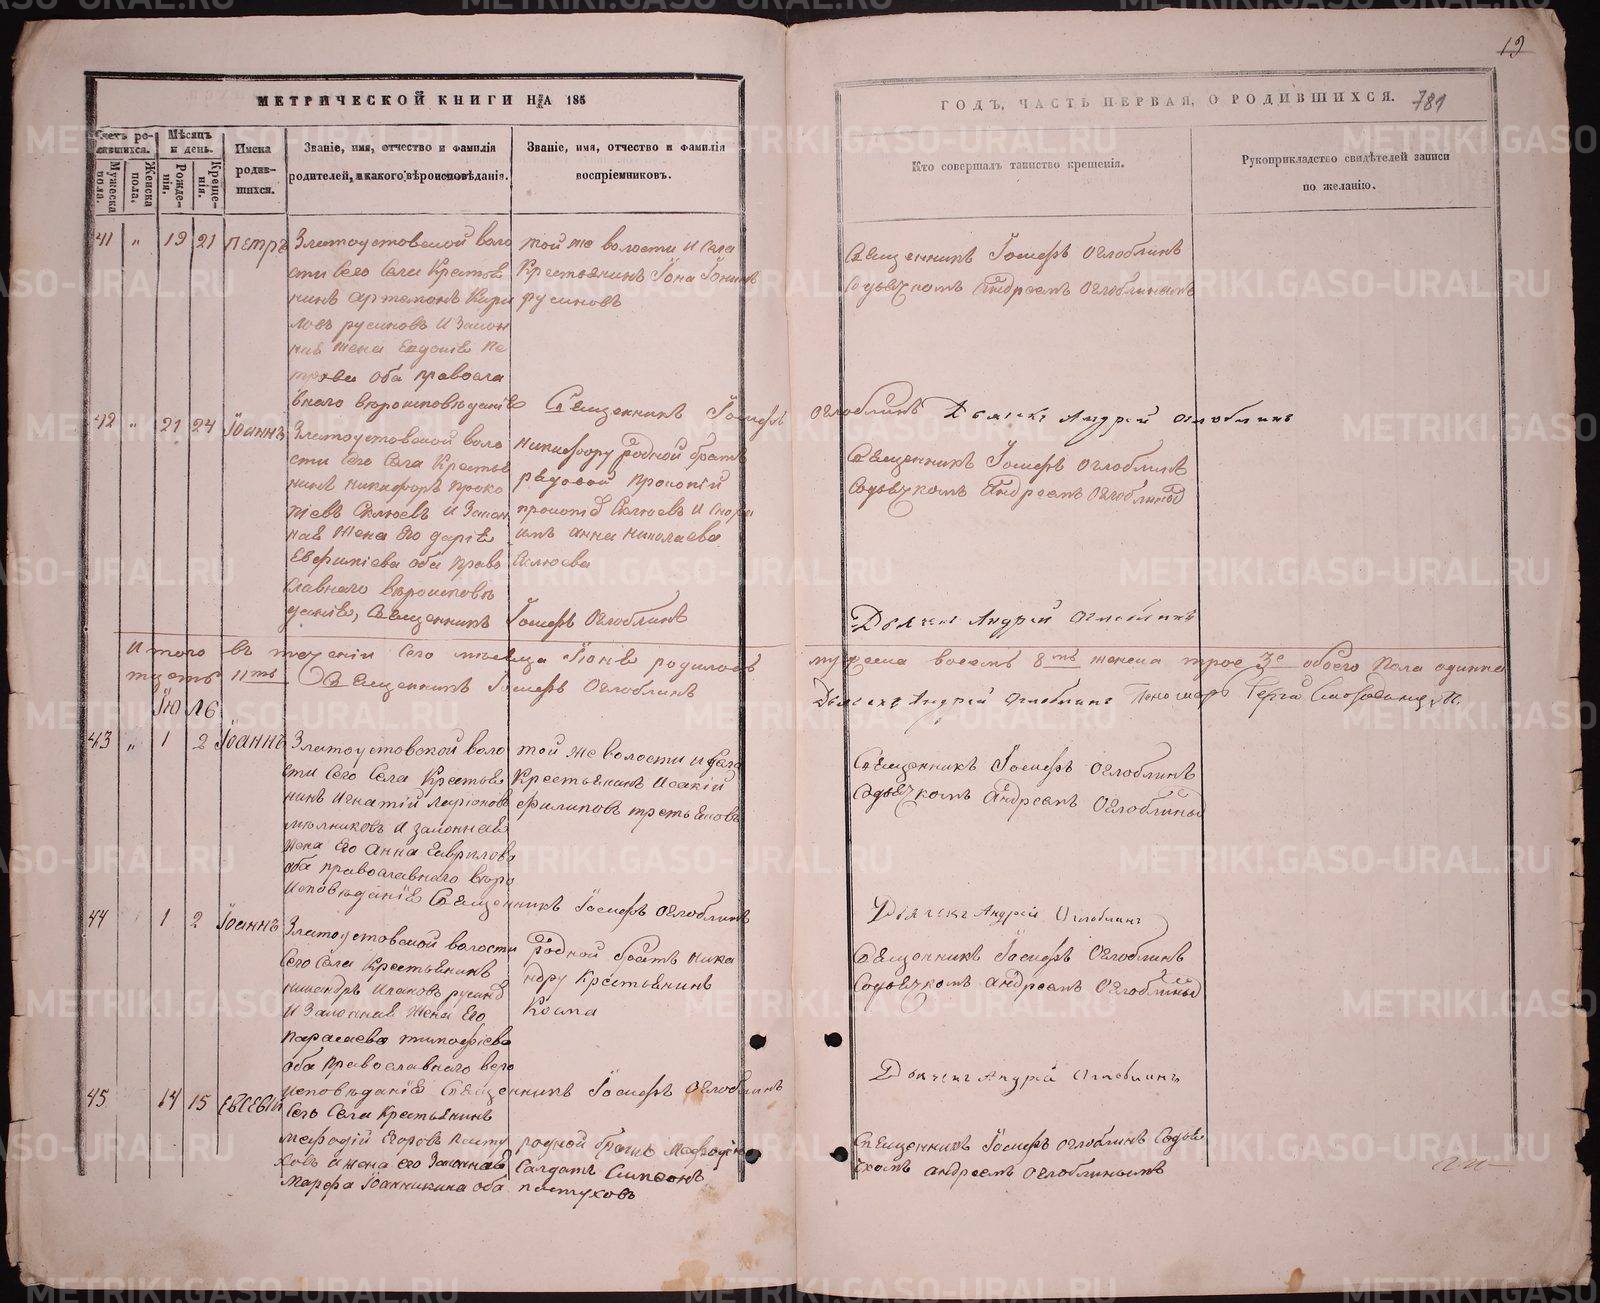 19
МЕТРИЧЕСКОЙ КНИГИ НА 185
ГОДЪ, ЧАСТЬ ПЕРВАЯ, О РОДИВШИХСЯ.
781
Счетъ ро-
дившихся.
Мужеска
пола.
Женска
пола.
Мѣсяцъ
и день.
Рожде-
нія.
Креще-
нія.
Имена
родив-
шихся.
Званіе, имя, отчество и фамилія
родителей, и какого вѣроисповѣданія.
Званіе, имя, отчество и фамилія
воспріемниковъ.
Кто совершалъ таинство крещенія.
Рукоприкладство свидѣтелей записи
по желанію.
41 " 19 21 Петръ
Златоустовской воло
сти Сего Села Крестья
нинъ Артемонъ Кири
ловъ русиновъ и закон
ная жена Евдокія Пе
трова оба правосла
внаго вероисповѣданія
той же волости и Села
Крестьянинъ Іона Іонинъ
русиновъ
Священникъ Іосифъ Оглоблинъ
Содьячкомъ Андреемъ Оглоблинымъ
Священникъ Іосифъ Оглоблинъ Дьячекъ Андрей Оглоблинъ
42 " 21 24 Іоаннъ
Златоустовской воло
сти Сего Села Крестья
нинъ Никифоръ Проко
піевъ Склюевъ и Закон
ная жена Его Дарія
Евфиміева оба Право
славнаго вѣроисповѣ
данія, Священникъ Іосифъ Оглоблинъ
Никифору Родной братъ
рядовой Прокопій
Склюевъ и
Анна Николаева
Склюева
Священникъ Іосифъ Оглоблинъ
Содьячкомъ Андреемъ Оглоблинымъ
Дьячекъ Андрей Оглоблинъ
Итого въ теченіи Сего месяца Іюня родилось мужеска восемь 8мь женска трое 3е обоего Пола одинна
тцеть 11ть Священникъ Іосифъ Оглоблинъ Дьячекъ Андрей Оглоблинъ Пономарь
Іюль
43 " 1 2 Іоаннъ
Златоустовской воло
сти Сего Села Крестья
нинъ Игнатій Ларіоновъ
мелниковъ и законная
жена Его Анна Гаврилова
оба православнаго вѣро
исповѣданія Священникъ Іосифъ Оглоблинъ
той же волости и Села
Крестьянинъ Исакій
Филиповъ третьяковъ
Священникъ Іосифъ Оглоблинъ
Содьячкомъ Андреемъ Оглоблинымъ
Дьячекъ Андрей Оглоблинъ
44 1 2 Іоаннъ
Златоустовской волости
Сего Села Крестьянинъ
Никандръ
И Законная жена Его
Параскева тимофіева
оба Православнаго веро
исповѣданія Священникъ Іосифъ Оглоблинъ
Родной братъ Ника
ндру Крестьянинъ
Козма
Священникъ Іосифъ Оглоблинъ
Содьячкомъ Андреемъ Оглоблинымъ
Дьячекъ Андрей Оглоблинъ
45 14 15 Евсевій
Сего Села Крестьянинъ
Мефодій Егоровъ Пасту
ховъ и жена его Законная
Марфа Іоанникина оба
родной братъ Мефодія
Салдатъ Симеонъ
пастуховъ
Священникъ Іосифъ Оглоблинъ Содья
чкомъ Андреемъ Оглоблинымъ
METRIKI.GASO-URAL.RU